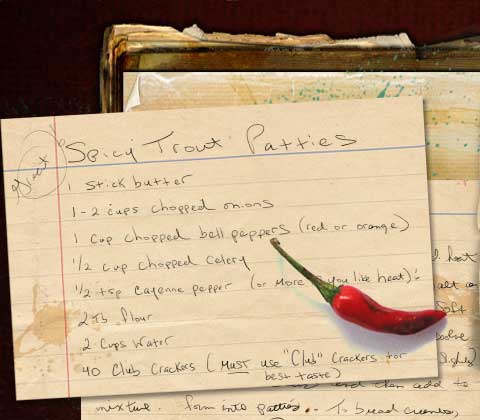 Trout
Spicy Trout Patties
1 stick butter
1-2 cups chopped onions
1 cup chopped bell peppers (red or orange)
1/2 cup chopped celery
1/2 tsp cayenne pepper (or more if you like heat)
2 tb flour
2 cups water
40 Club Crackers (MUST use "Club" Crackers for
best taste)
heat
salt
soft
and then add to
mixture. form into patties. - To bread